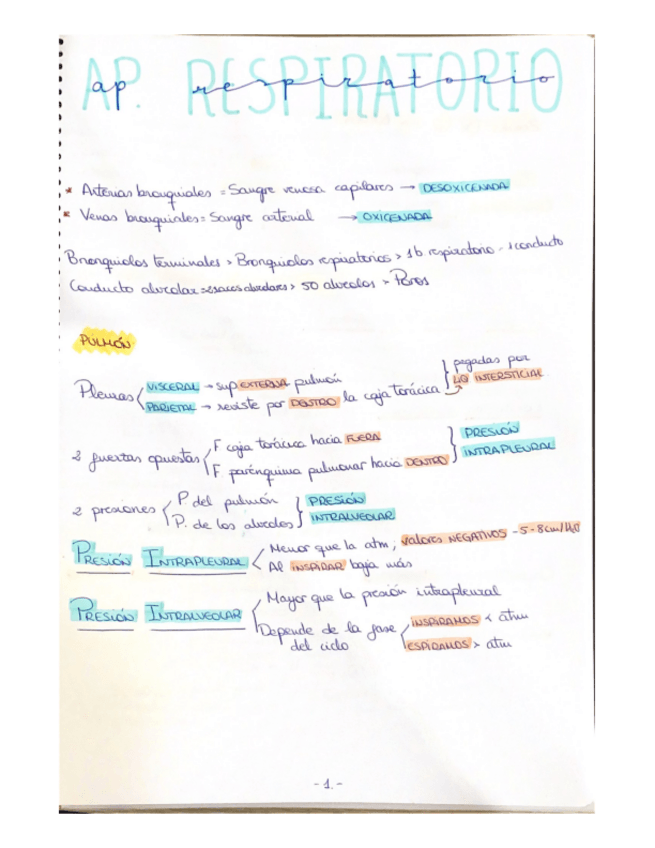 AP. RESPIRATORIO
ap respiratorio
* Arterias bronquiales = Sangre venosa capilares → DESOXIGENADA
* Venas bronquiales = Sangre arterial → OXIGENADA
Bronquiolos terminales > Bronquiolos respiratorios > 1b respiratorio - 1 conducto
Conducto alveolar > sacos alveolares > 50 alveolos > Poros
PULMÓN
Pleuras { VISCERAL → sup EXTERNA pulmón
PARIETAL → reviste por DENTRO la caja torácica } pegadas por LIQ INTERSTICIAL
2 fuerzas opuestas { F caja torácica hacia FUERA
F parénquima pulmonar hacia DENTRO } PRESIÓN INTRAPLEURAL
2 presiones { P del pulmón
P. de los alveolos } PRESIÓN INTRALVEOLAR
PRESIÓN INTRAPLEURAL < Menor que la atm, valores NEGATIVOS -5-8cm/H2O
Al INSPIRAR baja más
PRESIÓN INTRALVEOLAR { Mayor que la presión intrapleural
Depende de la fase del ciclo { INSPIRAMOS < atm
ESPIRAMOS > atm
- 1. -